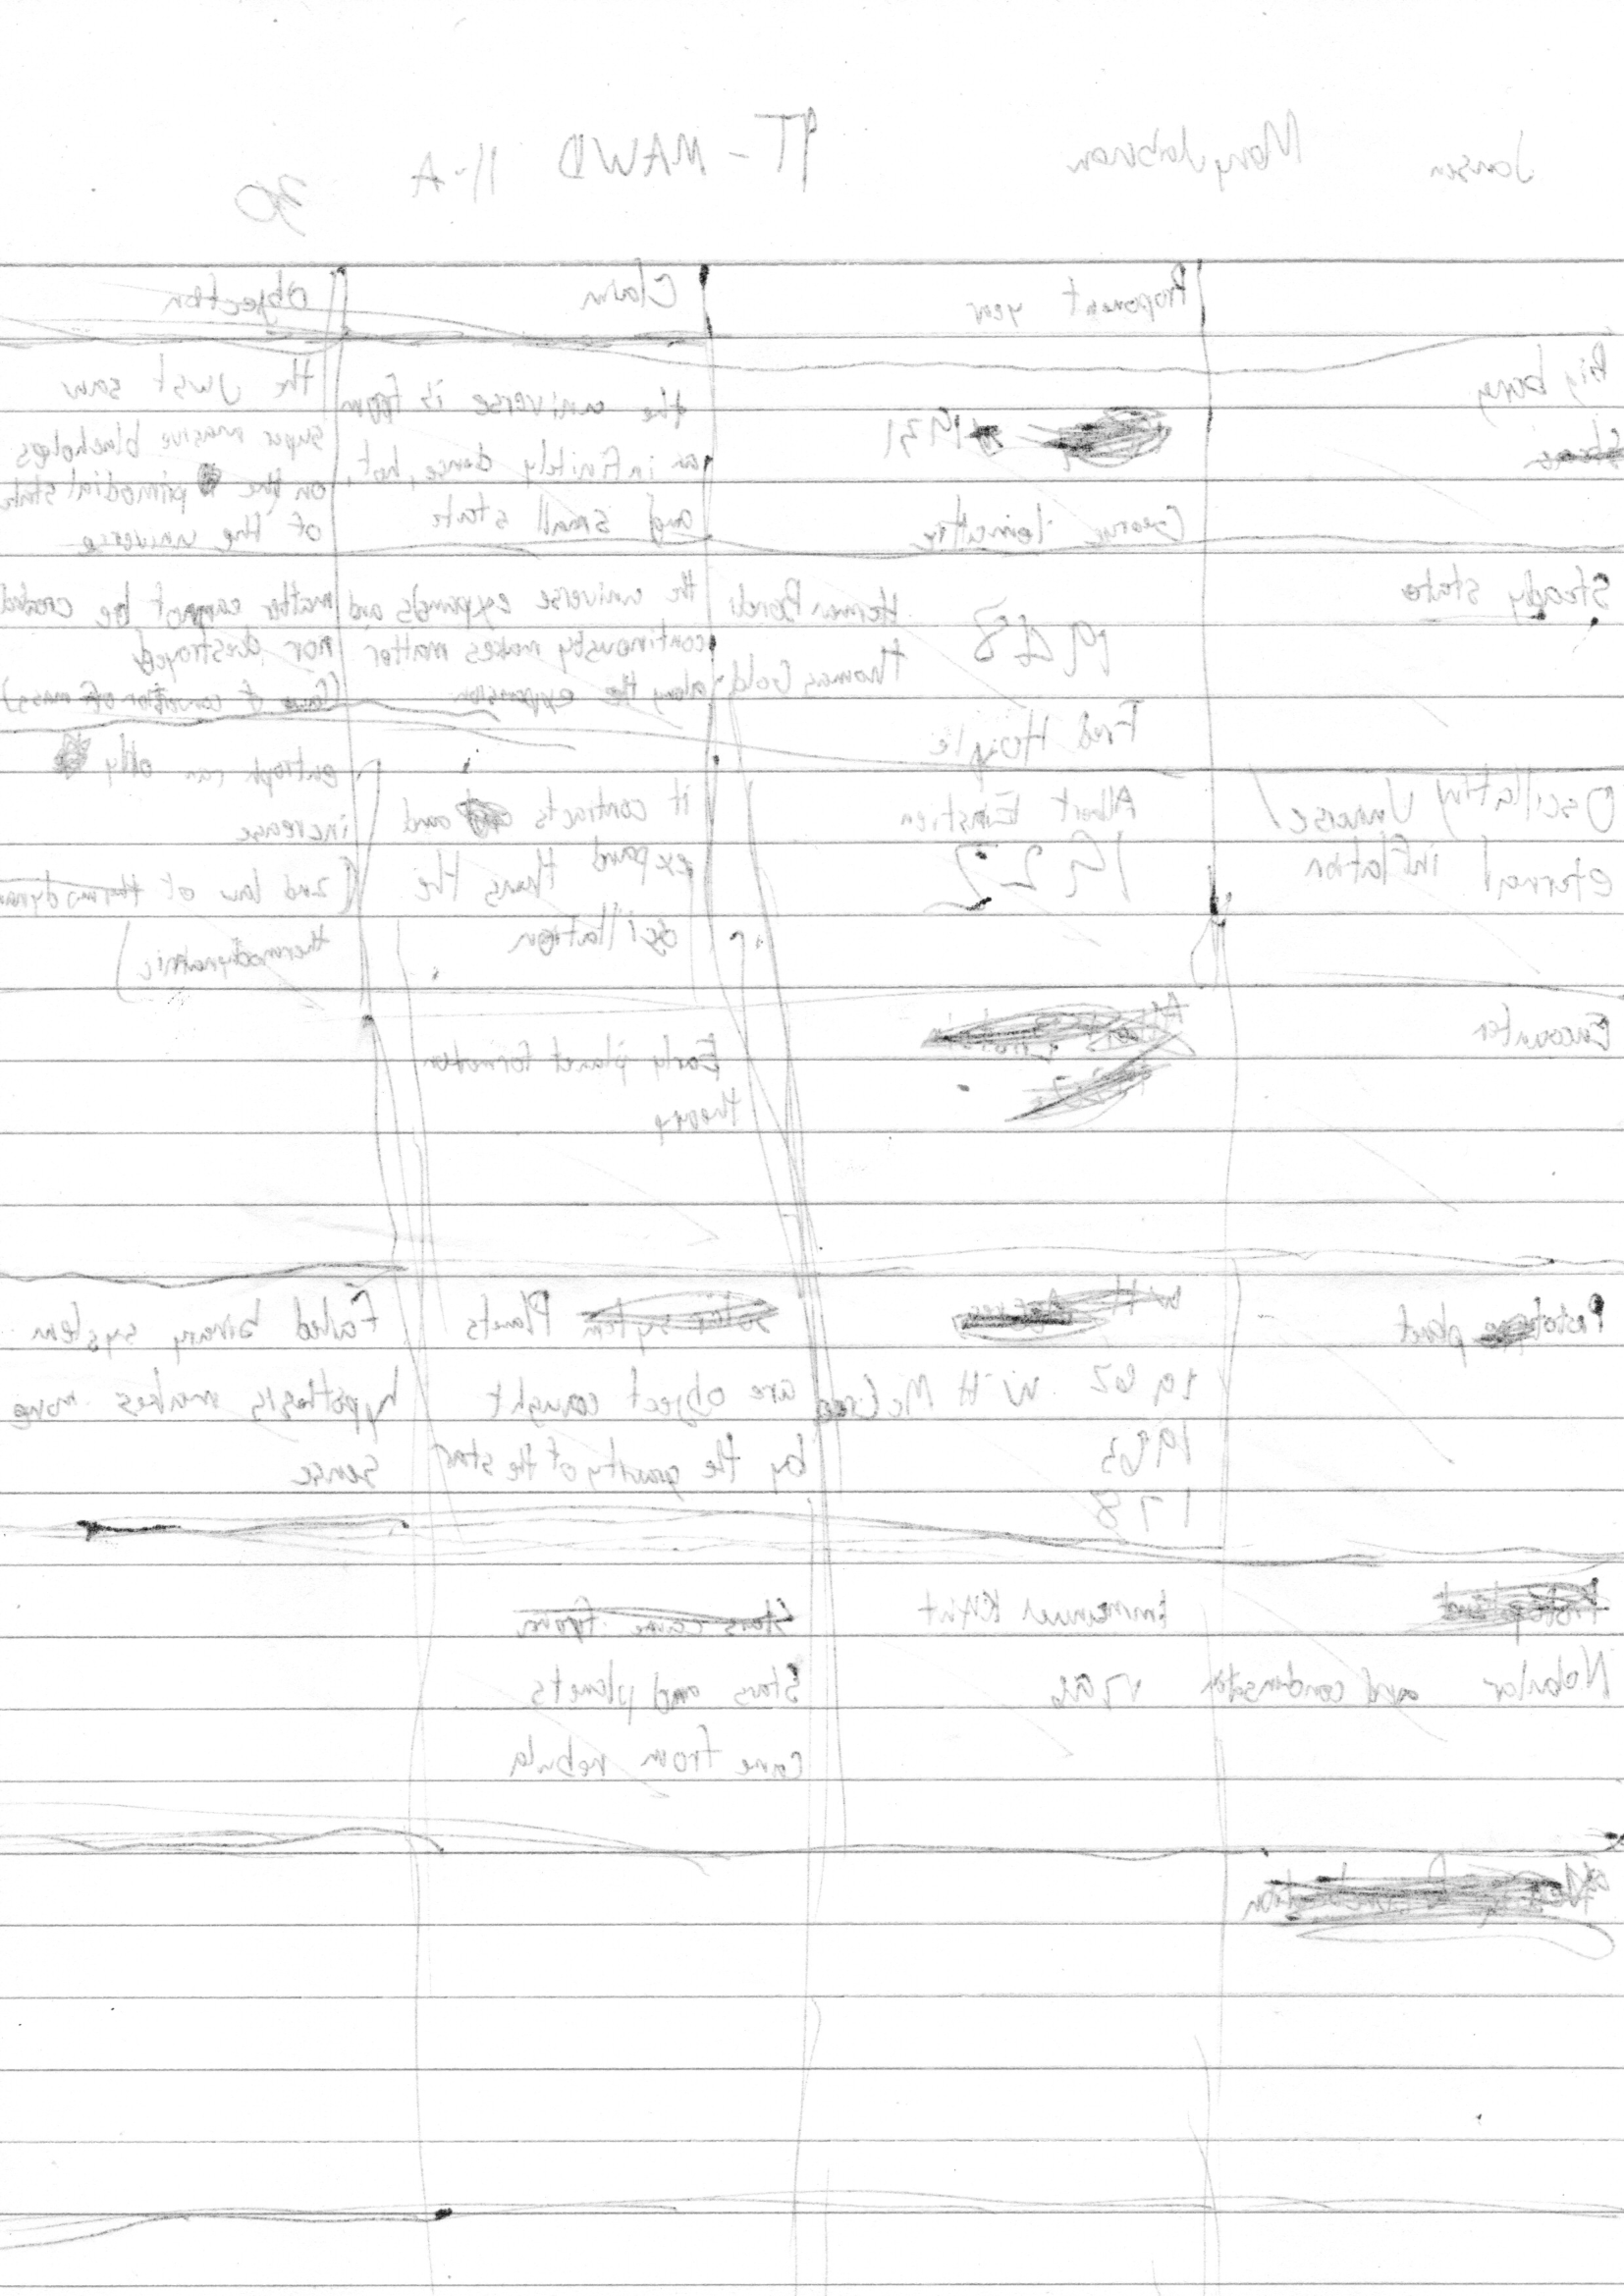 Jansen Mary PT - MAWD 11-A 30
Proponent year Claim Objection
Big bang
1931
George lemettre
the universe is from
an infinitely dence, hot,
and small state
the Just saw
super masive blackholes
on the primodial state
of the universe
Steady state
Herman Bondi
1948
Thomas Gold
Fred Hoyle
the universe expands and
continously makes matter
along the expansion
matter cannot be created
nor destroyed
Oscillating Universe/
eternal inflation
Albert Einstien
1927
it contracts and
expand thans the
oscillation
entroph can only
increase
(2nd law of
thermodynamic)
Encounter
Early planet formation
theory
planet
1962 W H McCrea
1963
178
Planets
are object caught
by the gravity of the star
Failed binary system
hypothesis makes more
sense
Nebular and condensation
Immanuel Kant
Stars came from
Stars and planets
came from nebula